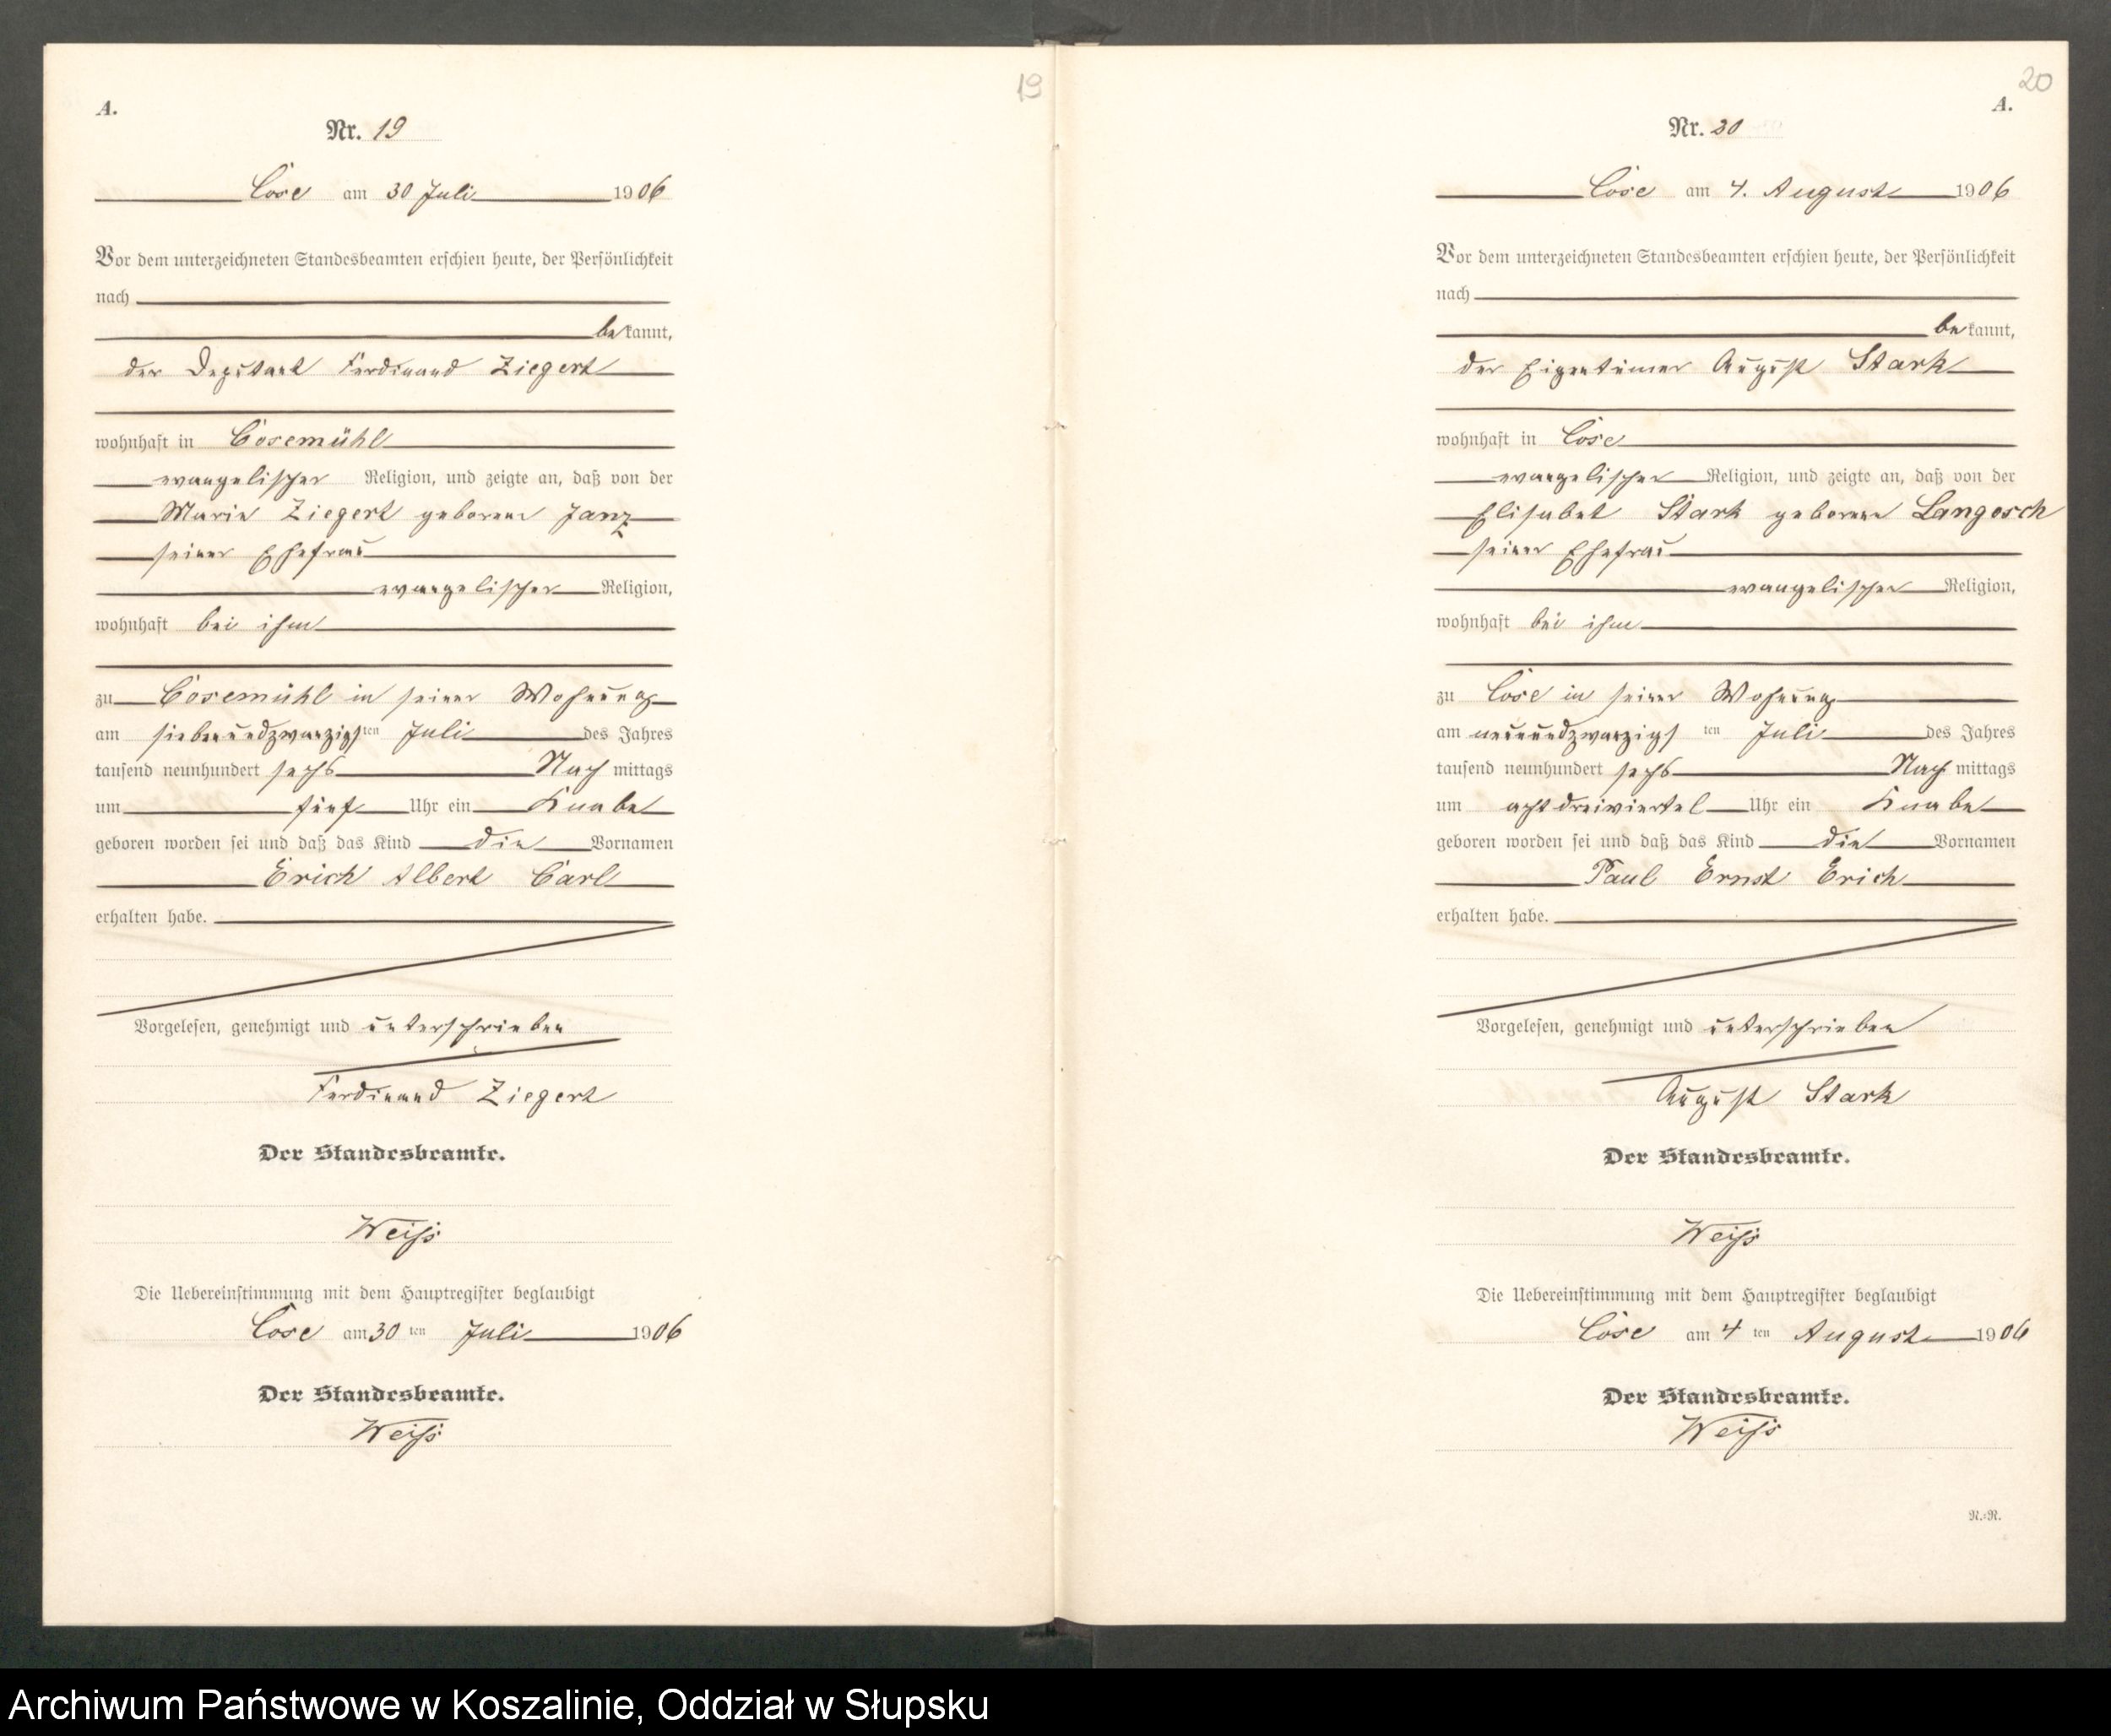 19
A.
Nr. 19
Cose am 30 Juli 1906
Vor dem unterzeichneten Standesbeamten erschien heute, der Persönlichkeit
nach
bekannt,
der Deputant Ferdinand Ziegert
wohnhaft in Cosemühl
evangelischer Religion, und zeigte an, daß von der
Marie Ziegert geborene Janz
seiner Ehefrau
evangelischer Religion,
wohnhaft bei ihm
zu Cosemühl in seiner Wohnung
am siebenundzwanzigsten Juli des Jahres
tausend neunhundert sechs Nachmittags
um fünf Uhr ein Knabe
geboren worden sei und daß das Kind die Vornamen
Erich Albert Carl
erhalten habe.
Vorgelesen, genehmigt und unterschrieben
Ferdinand Ziegert
Der Standesbeamte.
Weiß
Die Uebereinstimmung mit dem Hauptregister beglaubigt
Cose am 30 ten Juli 1906
Der Standesbeamte.
Weiß
20
A.
Nr. 20
Cose am 4. August 1906
Vor dem unterzeichneten Standesbeamten erschien heute, der Persönlichkeit
nach
bekannt,
der Eigentümer August Stark
wohnhaft in Cose
evangelischer Religion, und zeigte an, daß von der
Elisabet Stark geborene Langosch
seiner Ehefrau
evangelischer Religion,
wohnhaft bei ihm
zu Cose in seiner Wohnung
am neunundzwanzigs ten Juli des Jahres
tausend neunhundert sechs Nachmittags
um acht dreiviertel Uhr ein Knabe
geboren worden sei und daß das Kind die Vornamen
Paul Ernst Erich
erhalten habe.
Vorgelesen, genehmigt und unterschrieben
August Stark
Der Standesbeamte.
Weiß
Die Uebereinstimmung mit dem Hauptregister beglaubigt
Cose am 4 ten August 1906
Der Standesbeamte.
Weiß
R.=R.
Archiwum Państwowe w Koszalinie, Oddział w Słupsku